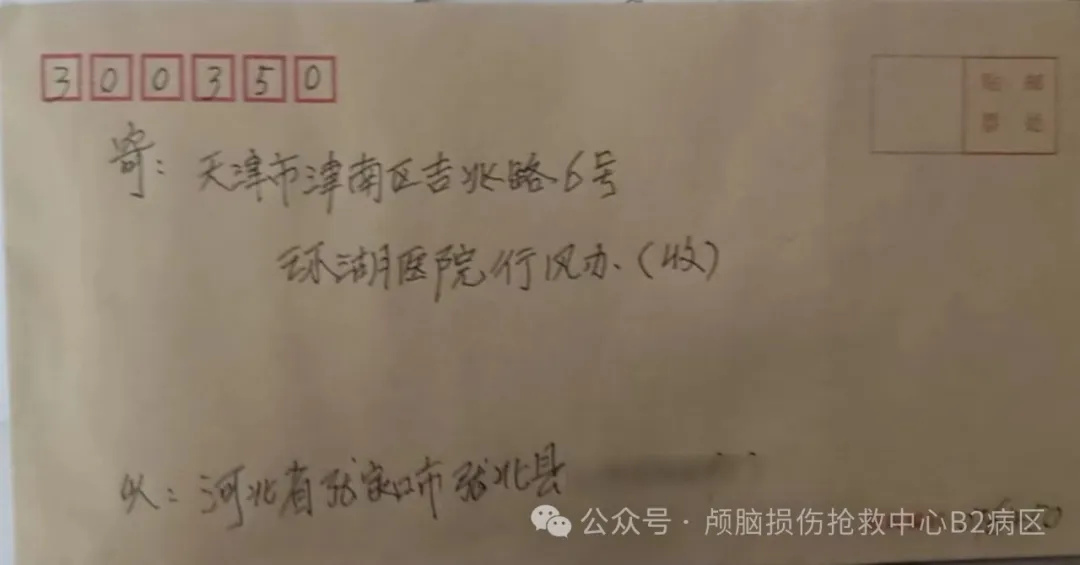 300350
贴邮
票处
寄：天津市津南区吉兆路6号
环湖医院行风办（收）
从：河北省张家口市张北县
公众号·颅脑损伤抢救中心B2病区